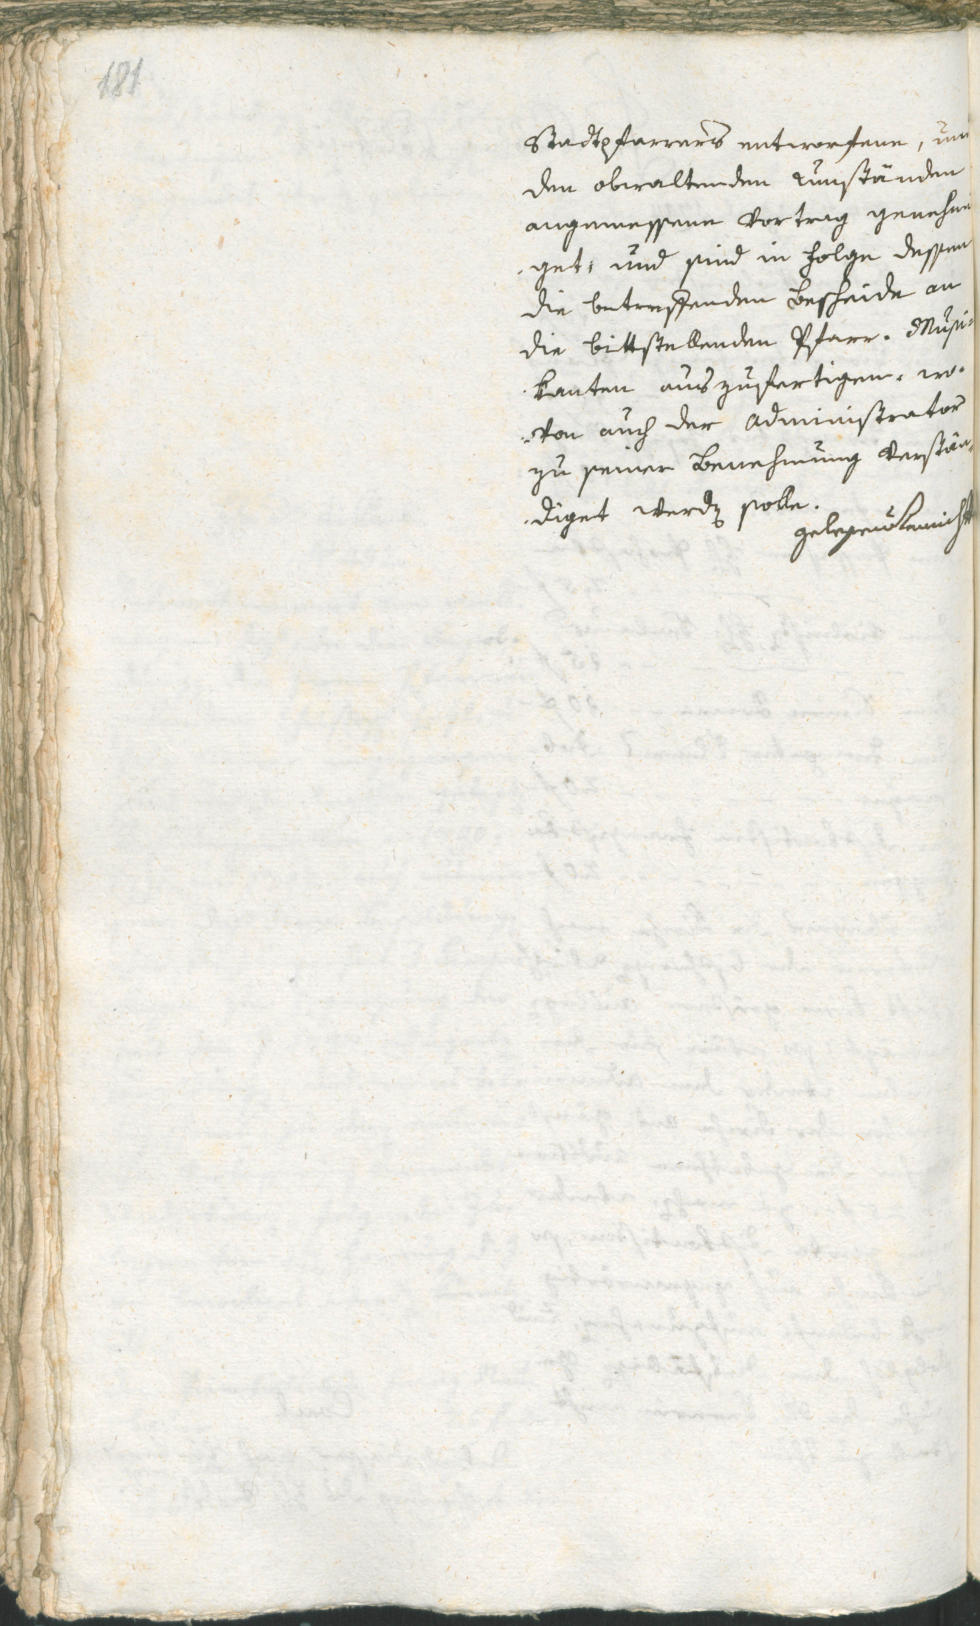 181
Stadtpfarrers entworfene, und
den obwaltenden Umständen
angemessene Vortrag genehmi
get, und sind in Folge dessen
die betreffenden Bescheide an
die bittstellenden Pfarr-Musi-
kanten auszufertigen, wo-
von auch der Administrator
zu seiner Benehmung verstän-
diget werden solle.